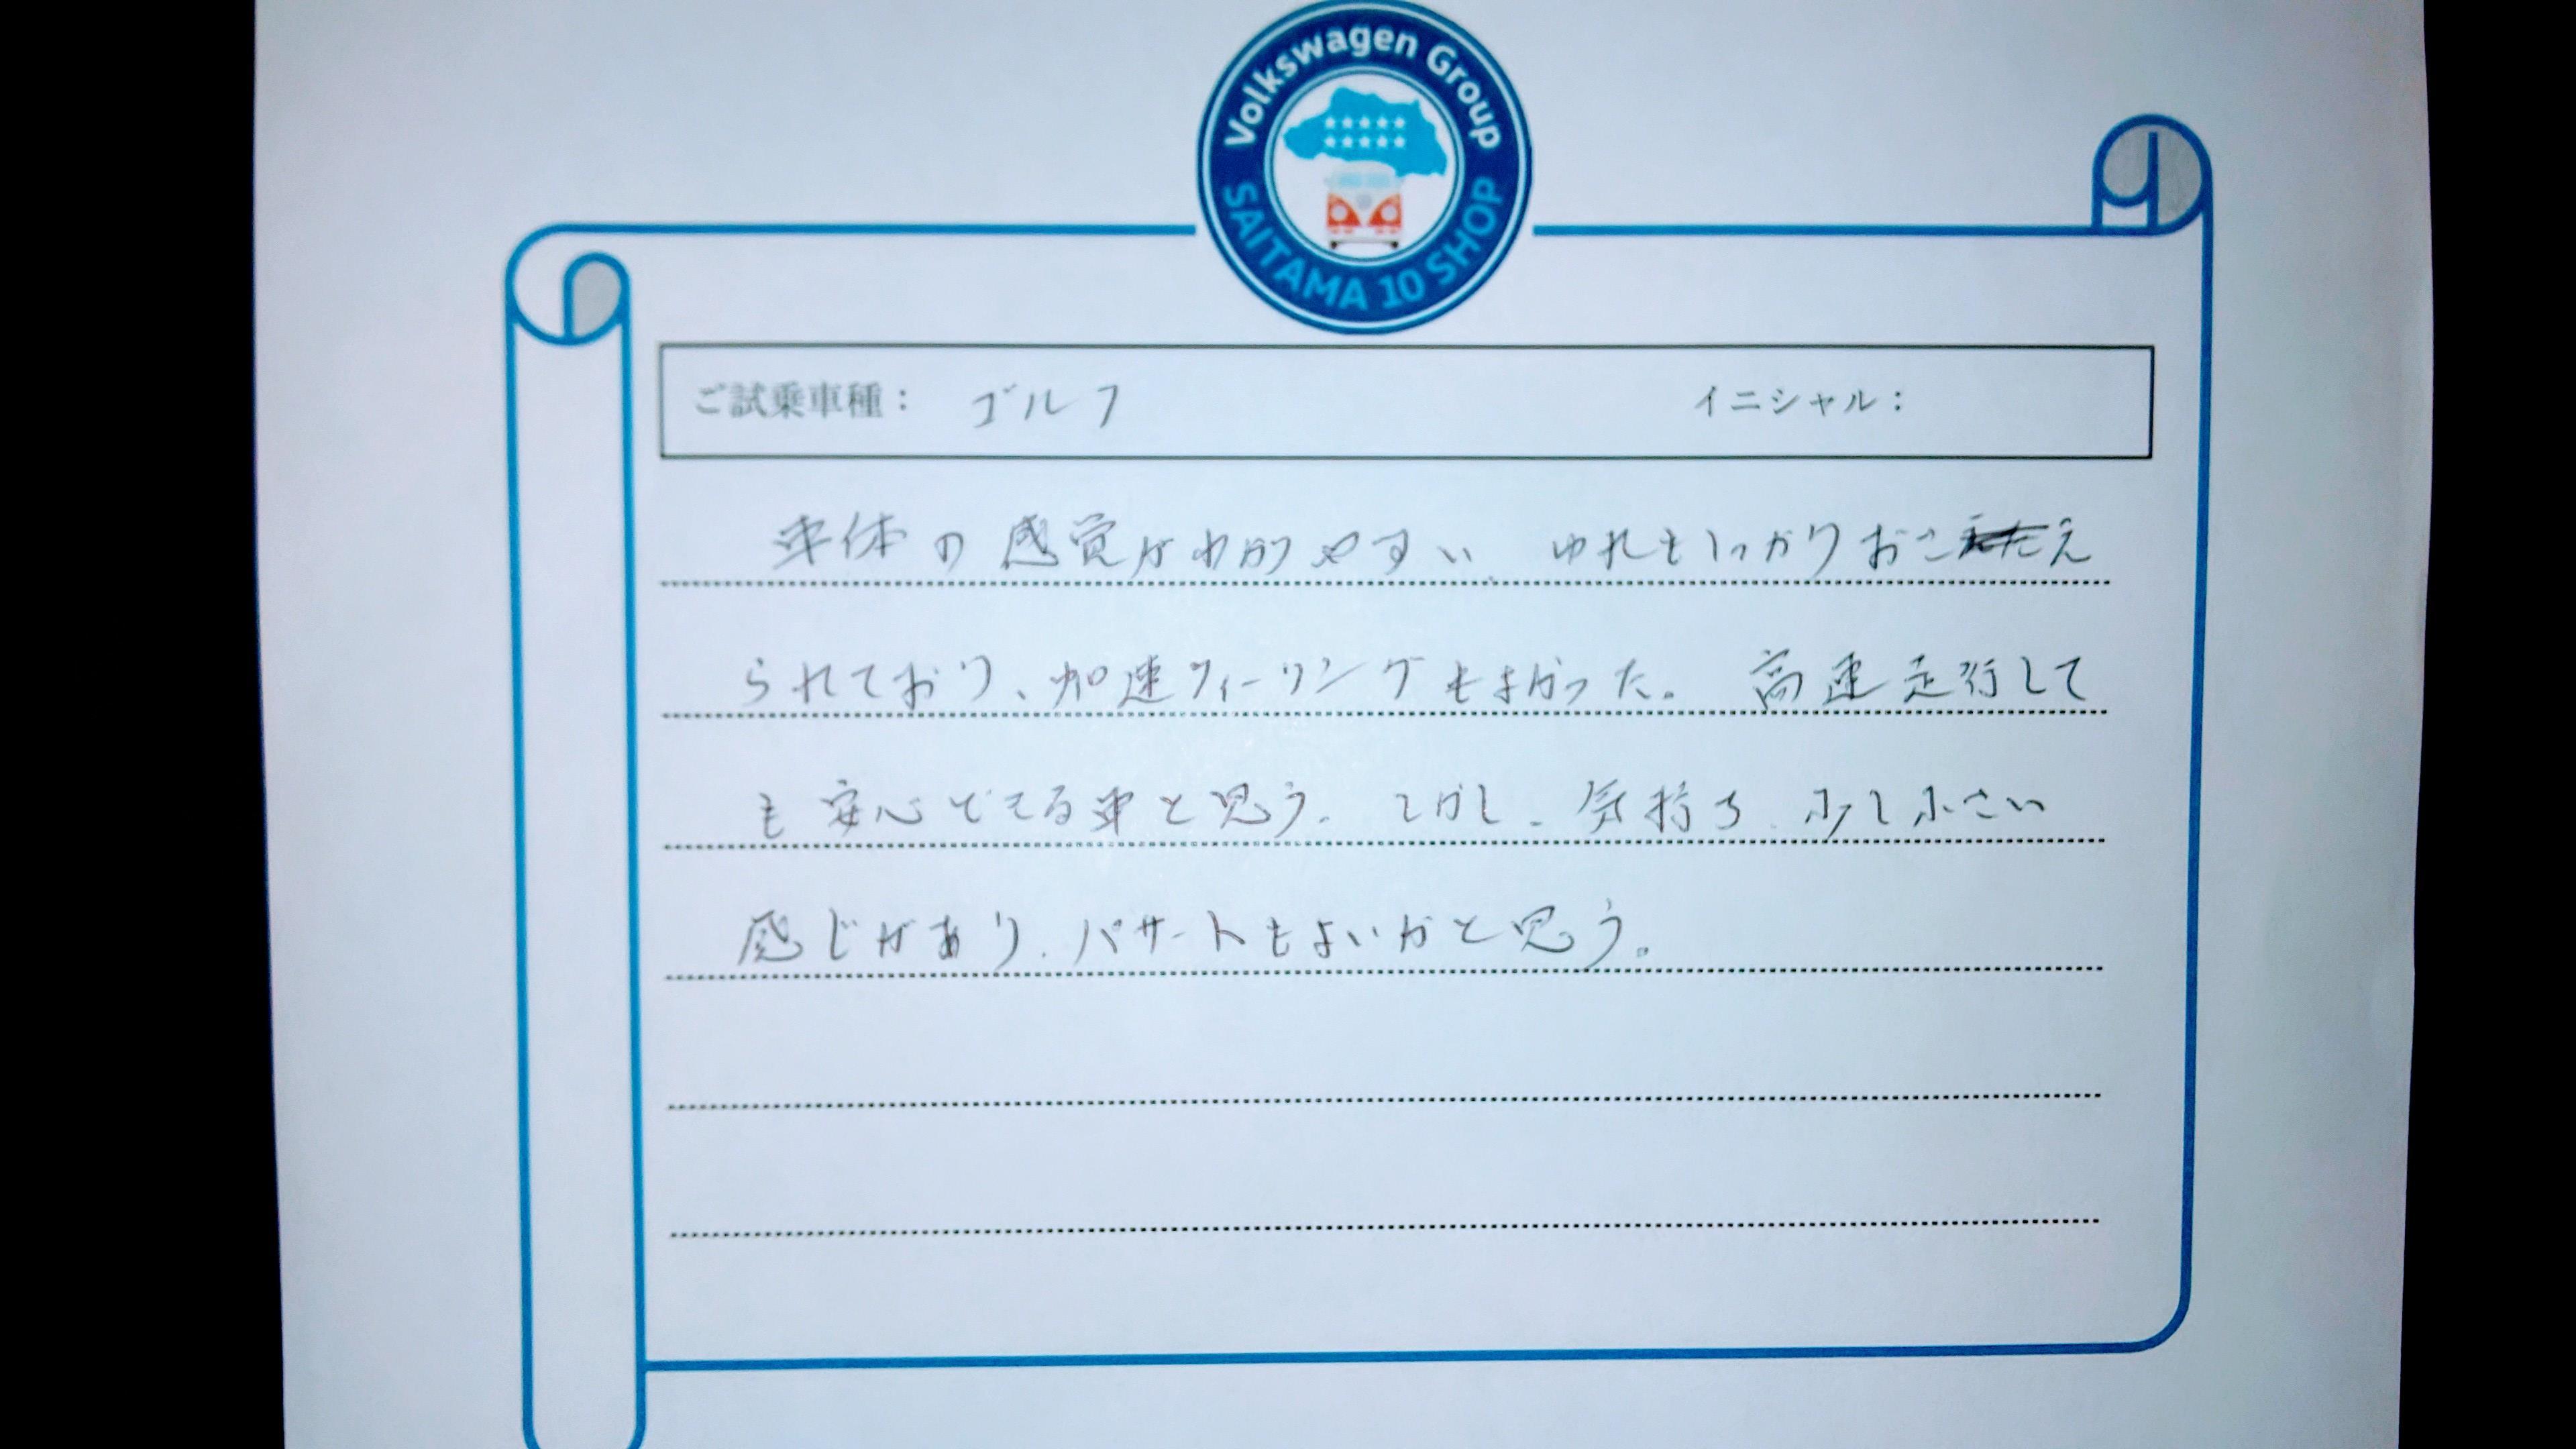 Volkswagen Group
SAITAMA 10 SHOP
ご試乗車種： ゴルフ イニシャル：
車体の感覚がわかりやすい、ゆれもしっかりおこえ
られており、加速フィーリングもよかった。高速走行して
も安心できる車と思う。しかし、気持ち、少し小さい
感じがあり、パサートもよいかと思う。